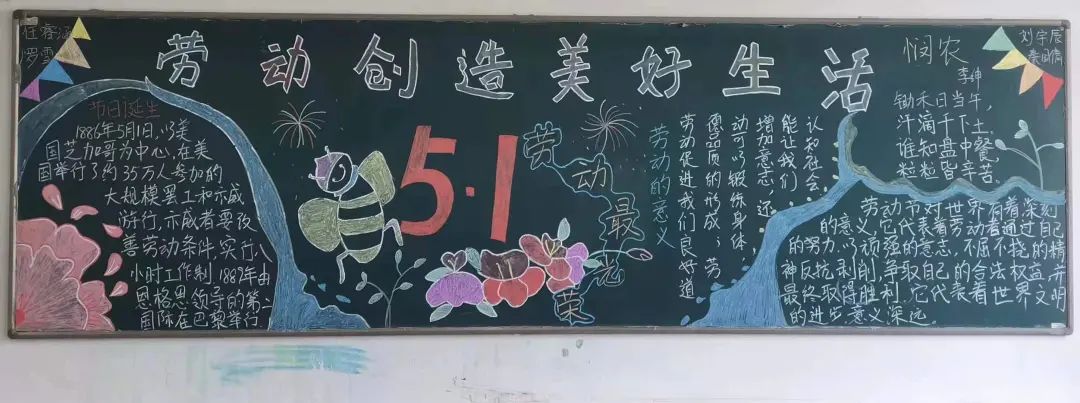 任睿涵
罗雪
劳动创造美好生活
刘宇辰
节日诞生
1886年5月1日,以美
国芝加哥为中心,在美
国举行了约35万人参加的
大规模罢工和示威
游行,示威者要改
善劳动条件,实行八
小时工作制,年由
恩格思领导的第二
国际在巴黎举行.
5·1
劳动最光荣
劳动的意义
劳动促进我们良好道
德品质的形成;劳
动可以锻练身体,
增加意志;还
能让我们
认和社会.
悯农
李绅
锄禾日当午,
汗滴禾下土,
谁知盘中餐
粒粒皆辛苦.
劳动节对世界有着深刻
的意义,它代表着劳动者通过自己
的努力,以顽强的意志,不屈不挠的精
神反抗剥削,争取自己的合法权益,并
最终取得胜利.它代表着世界文明
的进步,意义深远.